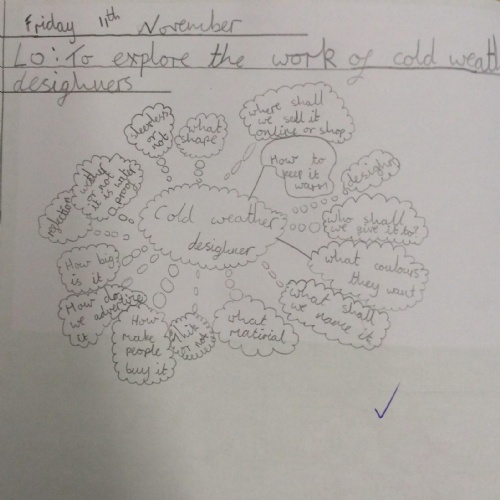 Friday 11th November
LO: To explore the work of cold weath
desighners
sleevless
or
not
what
shape
where shall
we sell it
online or shop
How to
keep it
warm
desighn
who shall
we give it to?
what coulours
they want
what shall
we name it
what
matirial
thik
or not
How
make
people
buy it
How do
we advertise
it
How big
is it
reflection
wether
or not
it is water
proof
Cold weather
desighner